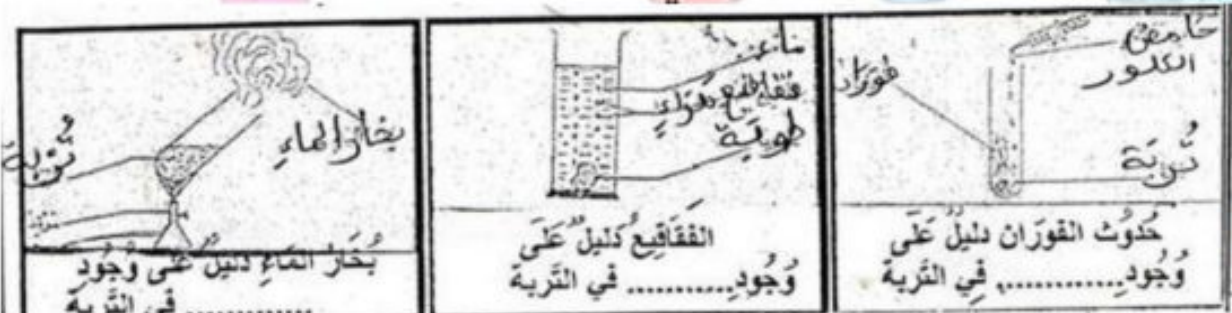 حامض
الكلور
فوران
تُربة
حُدُوث الفَوَرَان دليلٌ عَلَى
وُجُودِ............ فِي التَّربة
ماء
فقاقيع هواء
طوبة
الفَقَاقِيع دَليلٌ عَلَى
وُجُودِ............ في التَّربة
بخار الماءِ
تُربة
بُخَارُ المَاءِ دَليلٌ عَلَى وُجُودِ
............ في التَّربة